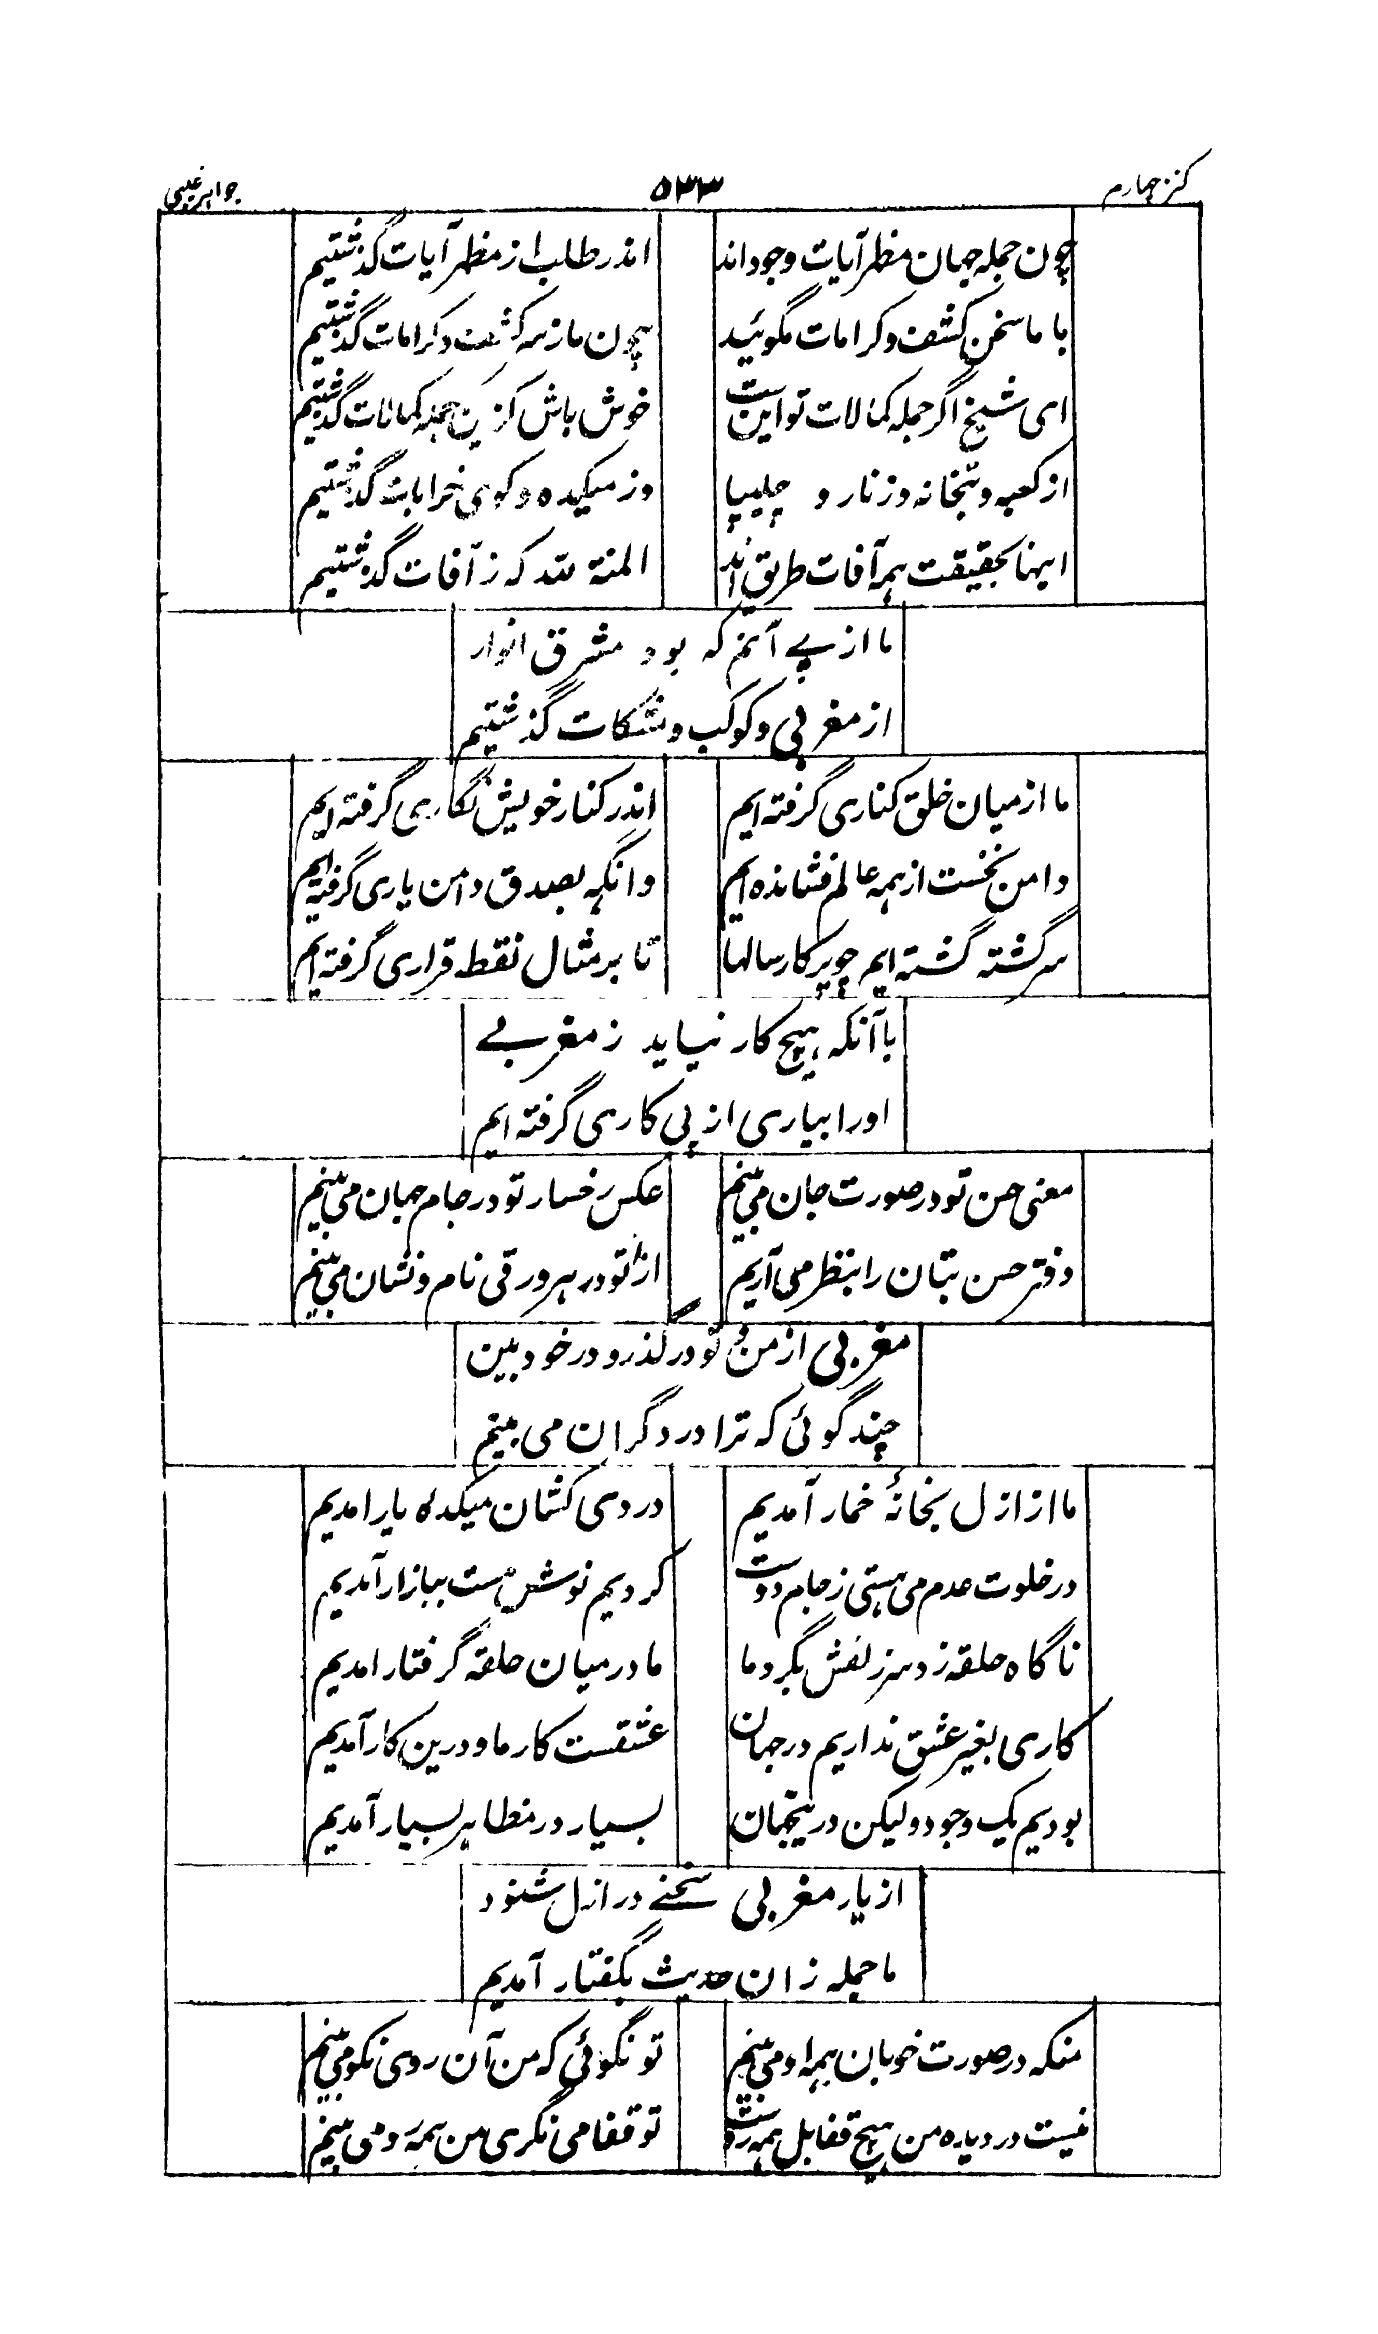 کنز چهارم ۵۳۳ جواهر غیبی
چون جمله جهان مظهر آیات وجود اند اندر طلب از مظهر آیات گذشتیم
با ما سخن کشف و کرامات مگوئید چون ما ز سر کشف و کرامات گذشتیم
ای شیخ اگر جمله کمالات تو این است خوش باش کزین جمله کمالات گذشتیم
از کعبه و بتخانه و زنار و چلیپا وز میکده و کوی خرابات گذشتیم
اینها بحقیقت همه آفات طریق اند المنة لله که ز آفات گذشتیم
ما از پے آنیم که بود مشرق انوار
از مغربی و کوکب و مشکات گذشتیم
ما از میان خلق کناری گرفته ایم اندر کنار خویش نگاری گرفته ایم
دامن نخست از همه عالم فشانده ایم وانگه بصدق دامن یاری گرفته ایم
سرگشته گشته ایم چو پرکار سالها تا بر مثال نقطه قراری گرفته ایم
با آنکه هیچ کار نیاید ز مغربے
او را بیاری از پی کاری گرفته ایم
معنی حسن تو در صورت جان می بینم عکس رخسار تو در جام جهان می بینم
دفتر حسن بتان را بنظر می آریم از تو در هر ورقی نام و نشان می بینم
مغربی از من و تو درگذر و در خود بین
چند گوئی که ترا در دگران می بینم
ما از ازل بخانهٔ خمار آمدیم دردی کشان میکدهٔ یار امدیم
در خلوت عدم می هستی ز جام دوست کردیم نوش مست ببازار آمدیم
ناگاه حلقه زد سر زلفش بگرد ما ما در میان حلقه گرفتار امدیم
کاری بغیر عشق نداریم در جهان عشقست کار ما و درین کار آمدیم
بودیم یک وجود و لیکن درینجهان بسیار در مظاهر بسیار آمدیم
از یار مغربی سخنے در ازل شنود
ما جمله زان حدیث بگفتار آمدیم
منکه در صورت خوبان همه او می بینم تو نگوئی که من آن روی نکو می بینم
نیست در دیده من هیچ قفابل همه روست تو قفا می نگری من همه رو می بینم